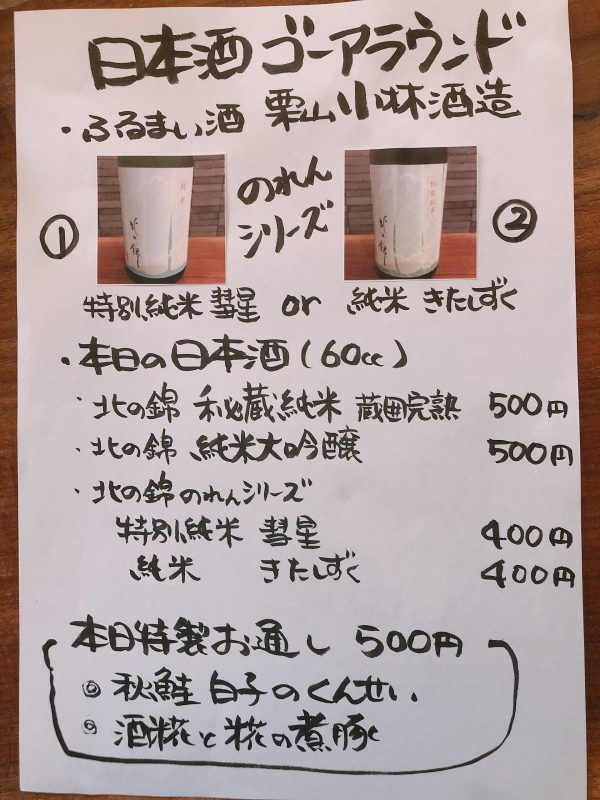 日本酒 ゴーアラウンド
・ふるまい酒 栗山小林酒造
のれん
シリーズ
①
②
純米
北の錦
特別純米
北の錦
特別純米 彗星 or 純米 きたしずく
・本日の日本酒(60cc)
・北の錦 秘蔵純米 蔵囲完熟 500円
・北の錦 純米大吟醸 500円
・北の錦 のれんシリーズ
特別純米 彗星 400円
純米 きたしずく 400円
本日特製お通し 500円
◎秋鮭 白子のくんせい
◎酒糀と糀の煮豚